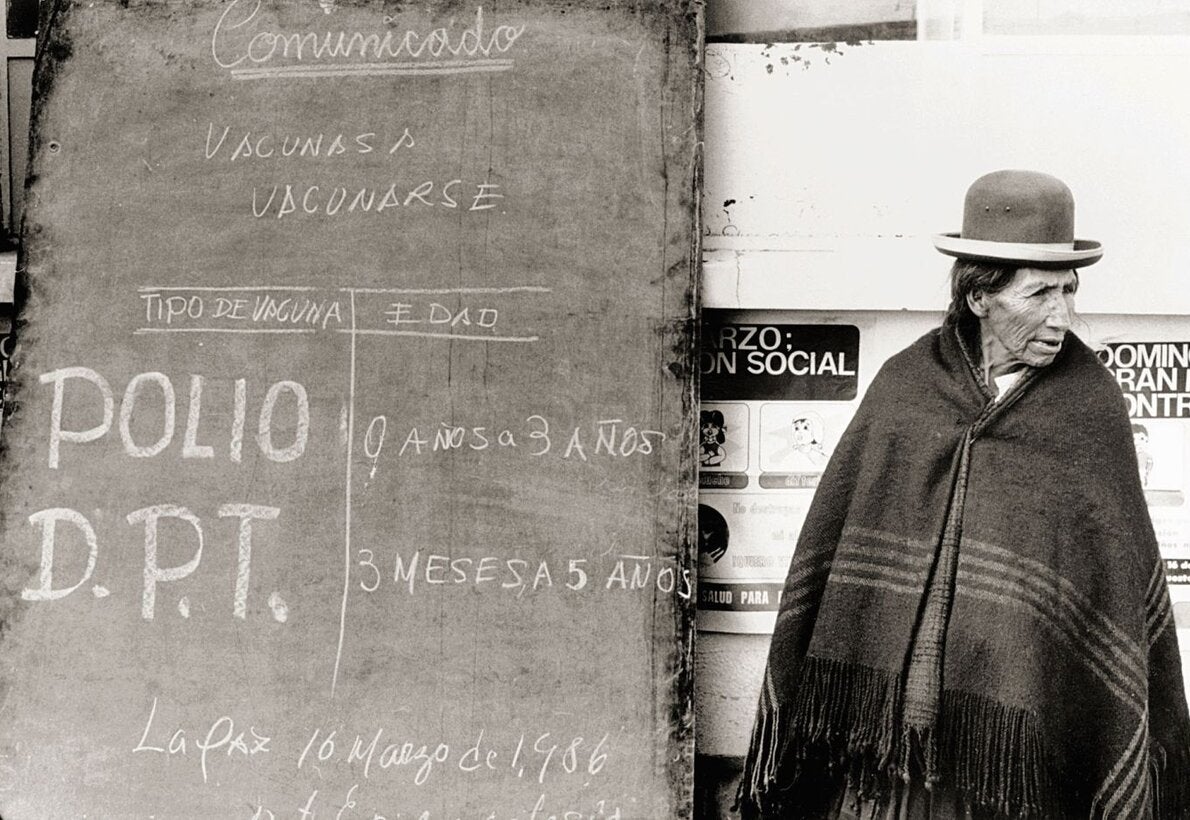 Comunicado
VACUNAS A
VACUNARSE
TIPO DE VACUNA EDAD
POLIO 0 AÑOS a 3 AÑOS
D.P.T. 3 MESES A 5 AÑOS
La Paz 16 Marzo de 1.986
ARZO:
ON SOCIAL
No destruya
SALUD PARA
DOMING
GRAN
ONTR